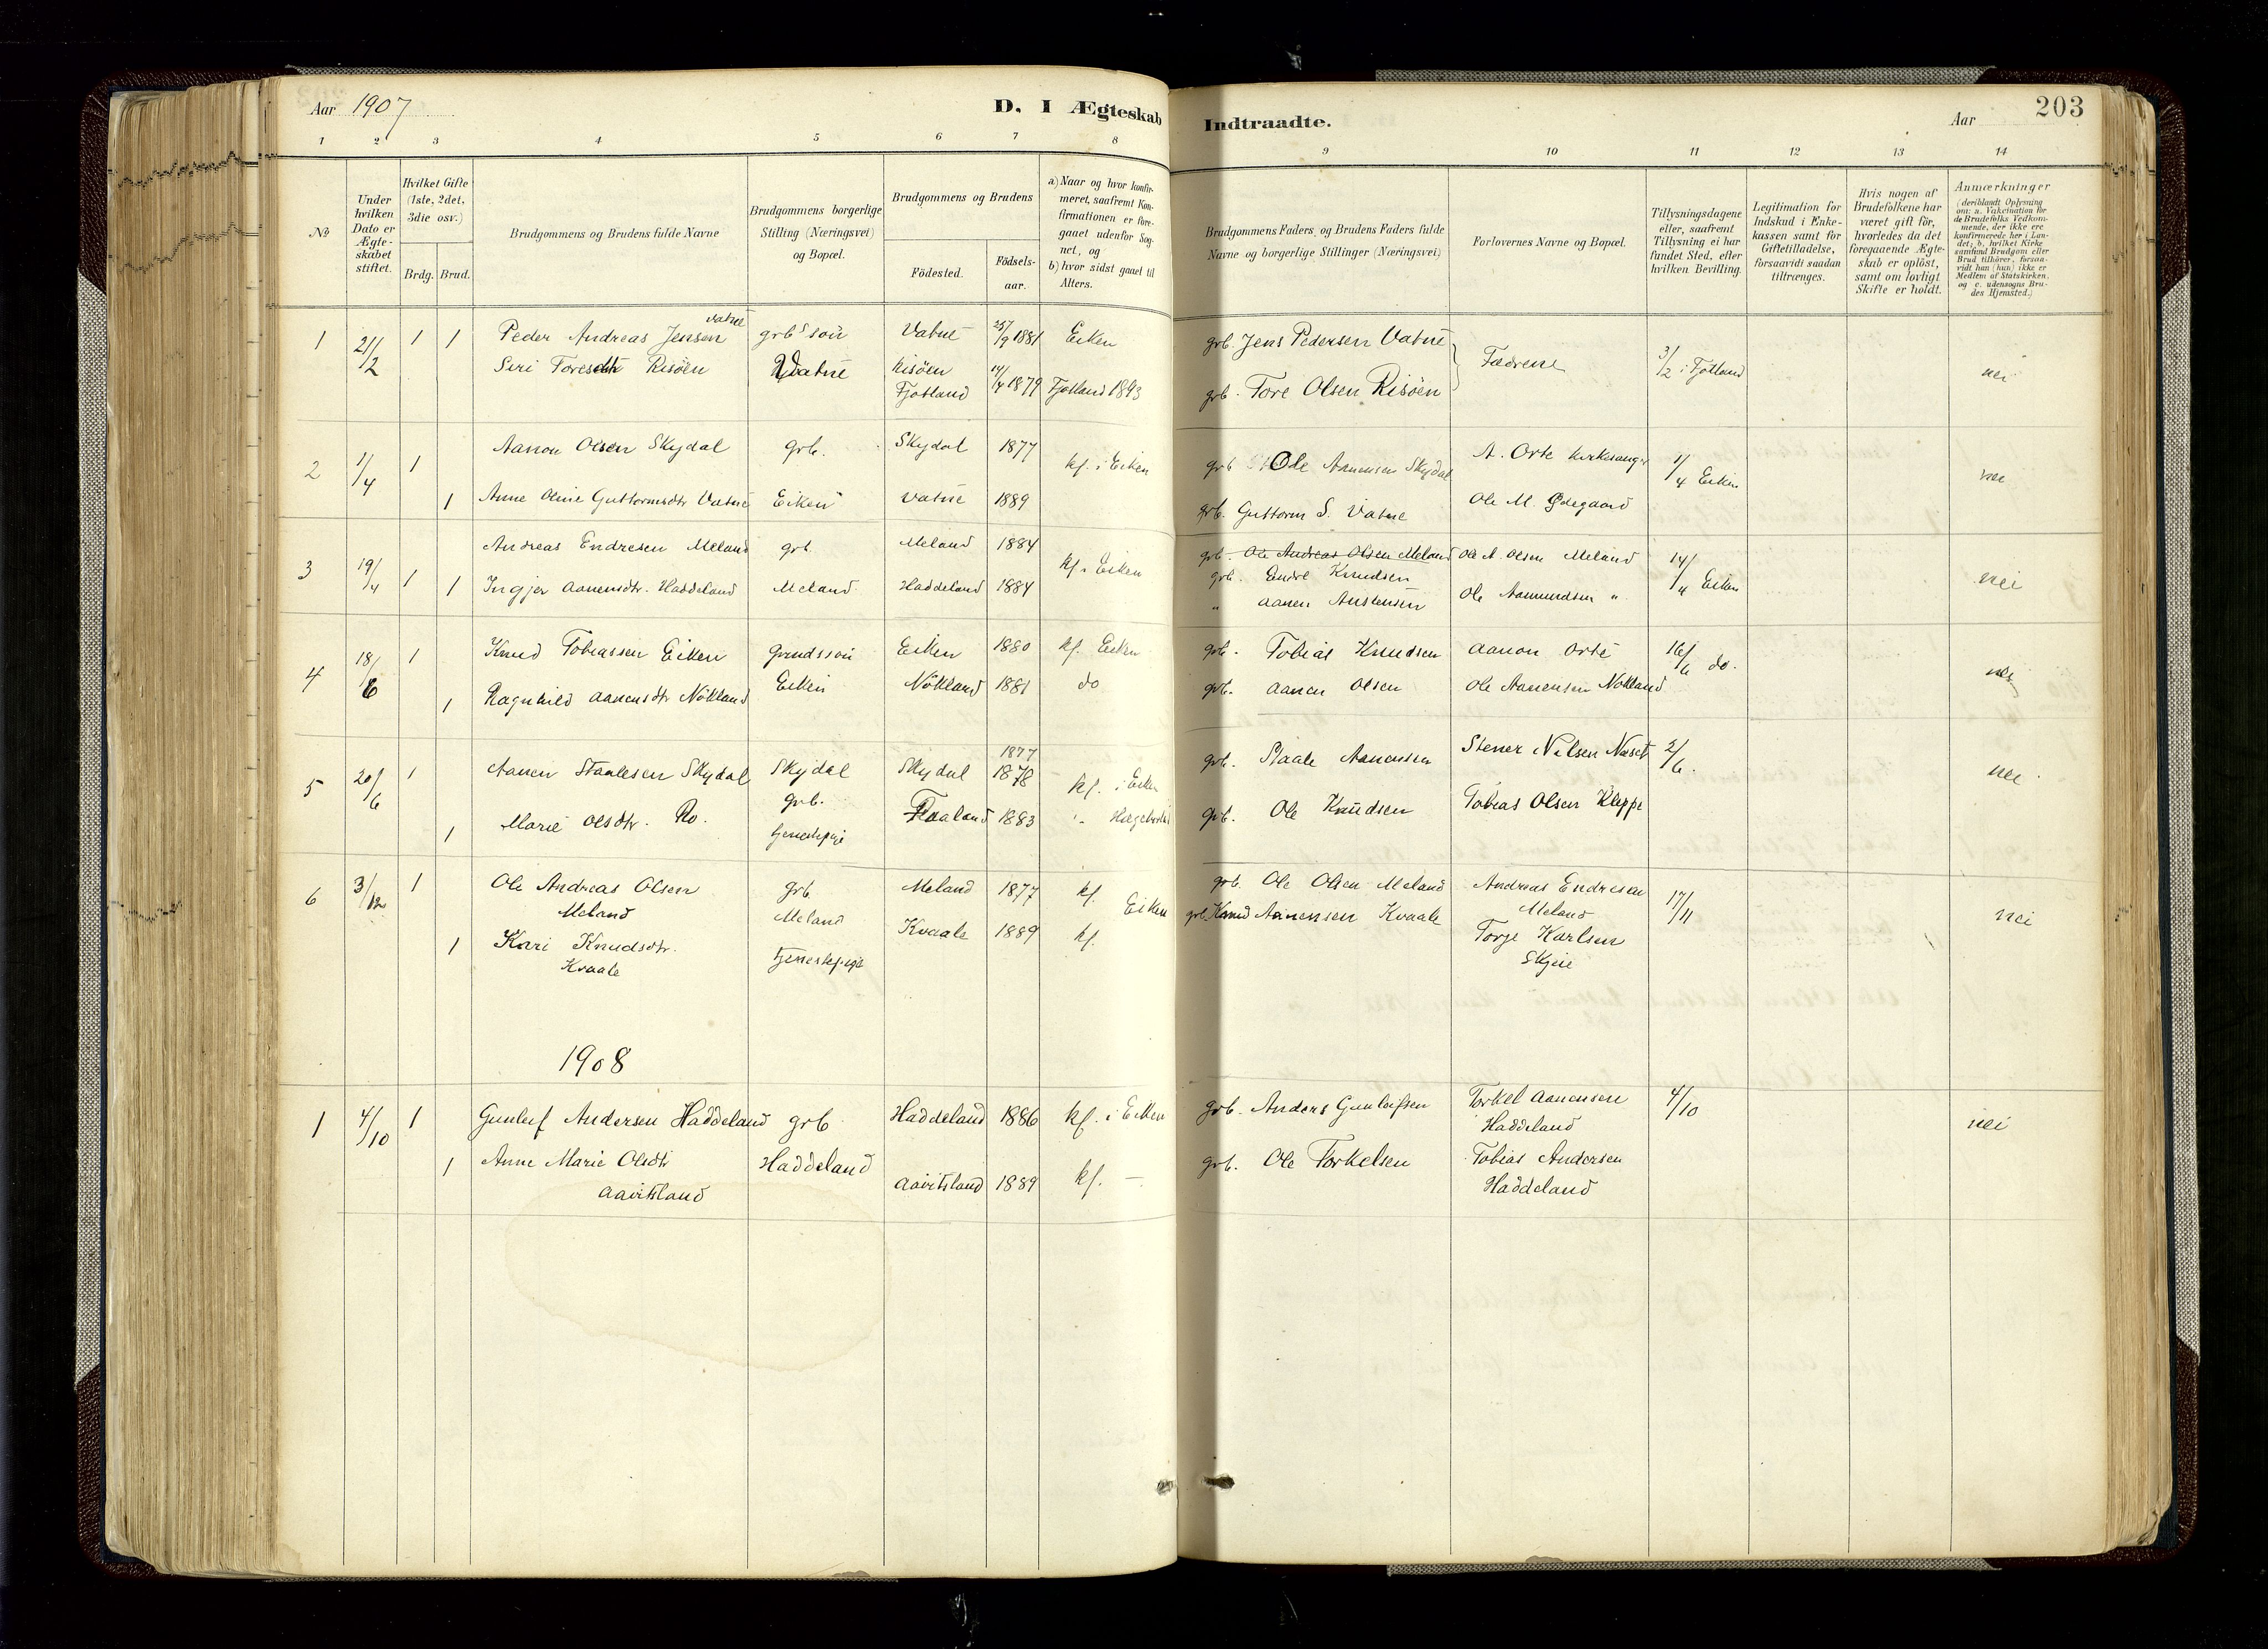 Aar 1907
D. I Ægteskab Indtraadte.
Aar
203
1 2 3 4 5 6 7 8 9 10 11 12 13 14
No
Under hvilken Dato er Ægteskabet stiftet.
Hvilket Gifte (1ste, 2det, 3die osv.)
Brdg. Brud.
Brudgommens og Brudens fulde Navne
Brudgommens borgerlige Stilling (Næringsvei) og Bopæl.
Brudgommens og Brudens
Födested.
Födsels-aar.
a) Naar og hvor konfirmeret, saafremt Konfirmationen er foregaaet udenfor Sognet, og
b) hvor sidst gaaet til Alters.
Brudgommens Faders og Brudens Faders fulde Navne og borgerlige Stillinger (Næringsvei)
Forlovernes Navne og Bopæl.
Tillysningsdagene eller, saafremt Tillysning ei har fundet Sted, efter hvilken Bevilling.
Legitimation for Indskud i Enkekassen samt for Giftetilladelse, forsaavidt saadan tiltrænges.
Hvis nogen af Brudefolkene har været gift för, hvorledes da det foregaaende Ægteskab er oplöst, samt om lovligt Skifte er holdt.
Anmærkninger (deriblandt Oplysning om: a. Vakcination for de Brudefolks Vedkommende, der ikke ere konfirmerede her i Landet; b. hvilket Kirkesamfund Brudgom eller Brud tilhörer, forsaavidt han (hun) ikke er Medlem af Statskirken, og c. udensogns Brudes Hjemsted.)
1 21/2 1 1 Peder Andreas Jensen Vatne grb s sön Vatne 25/9 1881 Eiken grb. Jens Pedersen Vatne Fædrene 3/2 i Fjotland nei
Siri Toresdtr Risöen Vatne Risöen Fjotland 14/4 1879 Fjotland 1893 grb. Tore Olsen Risöen
2 1/4 1 Aanon Olsen Skydal grb. Skydal 1877 kf. i Eiken grb Ole Aanensen Skydal A. Orte kirkesanger 1/4 Eiken nei
1 Anne Oline Guttormsdtr Vatne Eiken Vatne 1889 grb. Guttorm S. Vatne Ole M. Ödegaard
3 19/4 1 Andreas Endresen Meland grb. Meland 1884 kf. Eiken grb. Ole Andreas Olsen Meland Ole A. Olsen Meland 14/4 Eiken nei
grb. Endre Knudsen
1 Ingjer Aanensdtr. Haddeland Meland Haddeland 1884 " Aanen Austensen Ole Aamundsen "
4 18/6 1 Knud Tobiassen Eiken grndssön Eiken 1880 kf. Eiken grb. Tobias Knudsen Aanon Orte 16/6 do. nei
1 Ragnhild Aanensdtr Nökland Eiken Nökland 1881 do grb. Aanen Olsen Ole Aanensen Nökland
5 20/6 1 Aanen Staalesen Skydal Skydal grb. Skydal 1877 1878 kf. i Eiken grb. Staale Aanensen Stener Nilsen Næset 2/6. nei
1 Marie Olsdtr. Ro. tjenestepige 1883 " Hægebostad grb. Ole Knudsen Tobias Olsen Kleppe
6 3/12 1 Ole Andreas Olsen Meland grb. Meland Meland 1877 kf. Eiken grb. Ole Olsen Meland Andreas Endresen Meland 17/11 nei
1 Kari Knudsdtr. Kvaale tjenestepige Kvaale 1889 kf. grb. Knud Aanensen Kvaale Torje Karlsen Skjeie
1908
1 4/10 1 Gunleif Andersen Haddeland grb Haddeland 1886 kf. i Eiken grb. Anders Gunleifsen Torkel Aanensen Haddeland 4/10 nei
1 Anne Marie Olsdtr Aavitsland Haddeland Aavitsland 1889 kf. — grb. Ole Torkelsen Tobias Andersen Haddeland